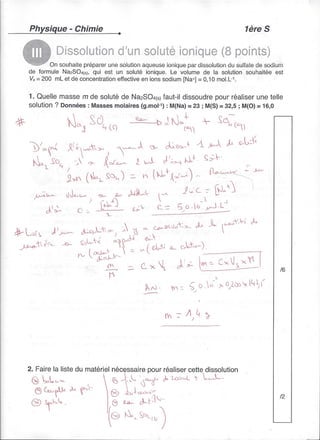 Physique - Chimie
1ère S
III
Dissolution d'un soluté ionique (8 points)
On souhaite préparer une solution aqueuse ionique par dissolution du sulfate de sodium
de formule Na₂SO₄₍ₛ₎, qui est un soluté ionique. Le volume de la solution souhaitée est
Vₛ = 200 mL et de concentration effective en ions sodium [Na⁺] = 0,10 mol.L⁻¹.
1. Quelle masse m de soluté de Na₂SO₄₍ₛ₎ faut-il dissoudre pour réaliser une telle
solution ? Données : Masses molaires (g.mol⁻¹) : M(Na) = 23 ; M(S) = 32,5 ; M(O) = 16,0
Na₂SO₄ (s) → 2Na⁺(aq) + SO₄²⁻(aq)
D'après l'équation, quand on dissout 1 mol de soluté
Na₂SO₄ il se forme 2 mol d'ions Na⁺ Soit
2 × n (Na₂SO₄) = n (Na⁺)
on en déduit que 2 × C = [Na⁺]
d'où C = [Na⁺] / 2 C = 5,0.10⁻² mol.L⁻¹
Lors d'une dissolution, il y a conservation de la quantité de
soluté
m / M = C × Vₛ d'où m = C × Vₛ × M
/6
AN: m = 5,0.10⁻² × 0,200 ×
m = 1,4 g
2. Faire la liste du matériel nécessaire pour réaliser cette dissolution
balance
fiole jaugée de 200 mL + bouchon
Coupelle de
/2
spatule
entonnoir
eau distillée
Na₂SO₄(s)